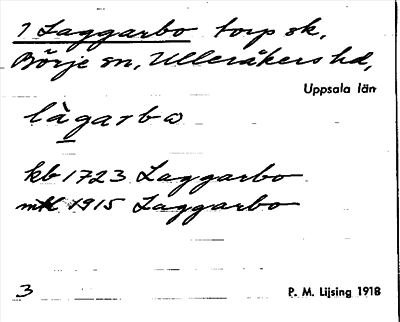 1 Laggarbo torp sk,
Börje sn, Ulleråkers hd,
Uppsala län
làgarbω
kb 1723 Laggarbo
mtl 1915 Laggarbo
3 P. M. Lijsing 1918